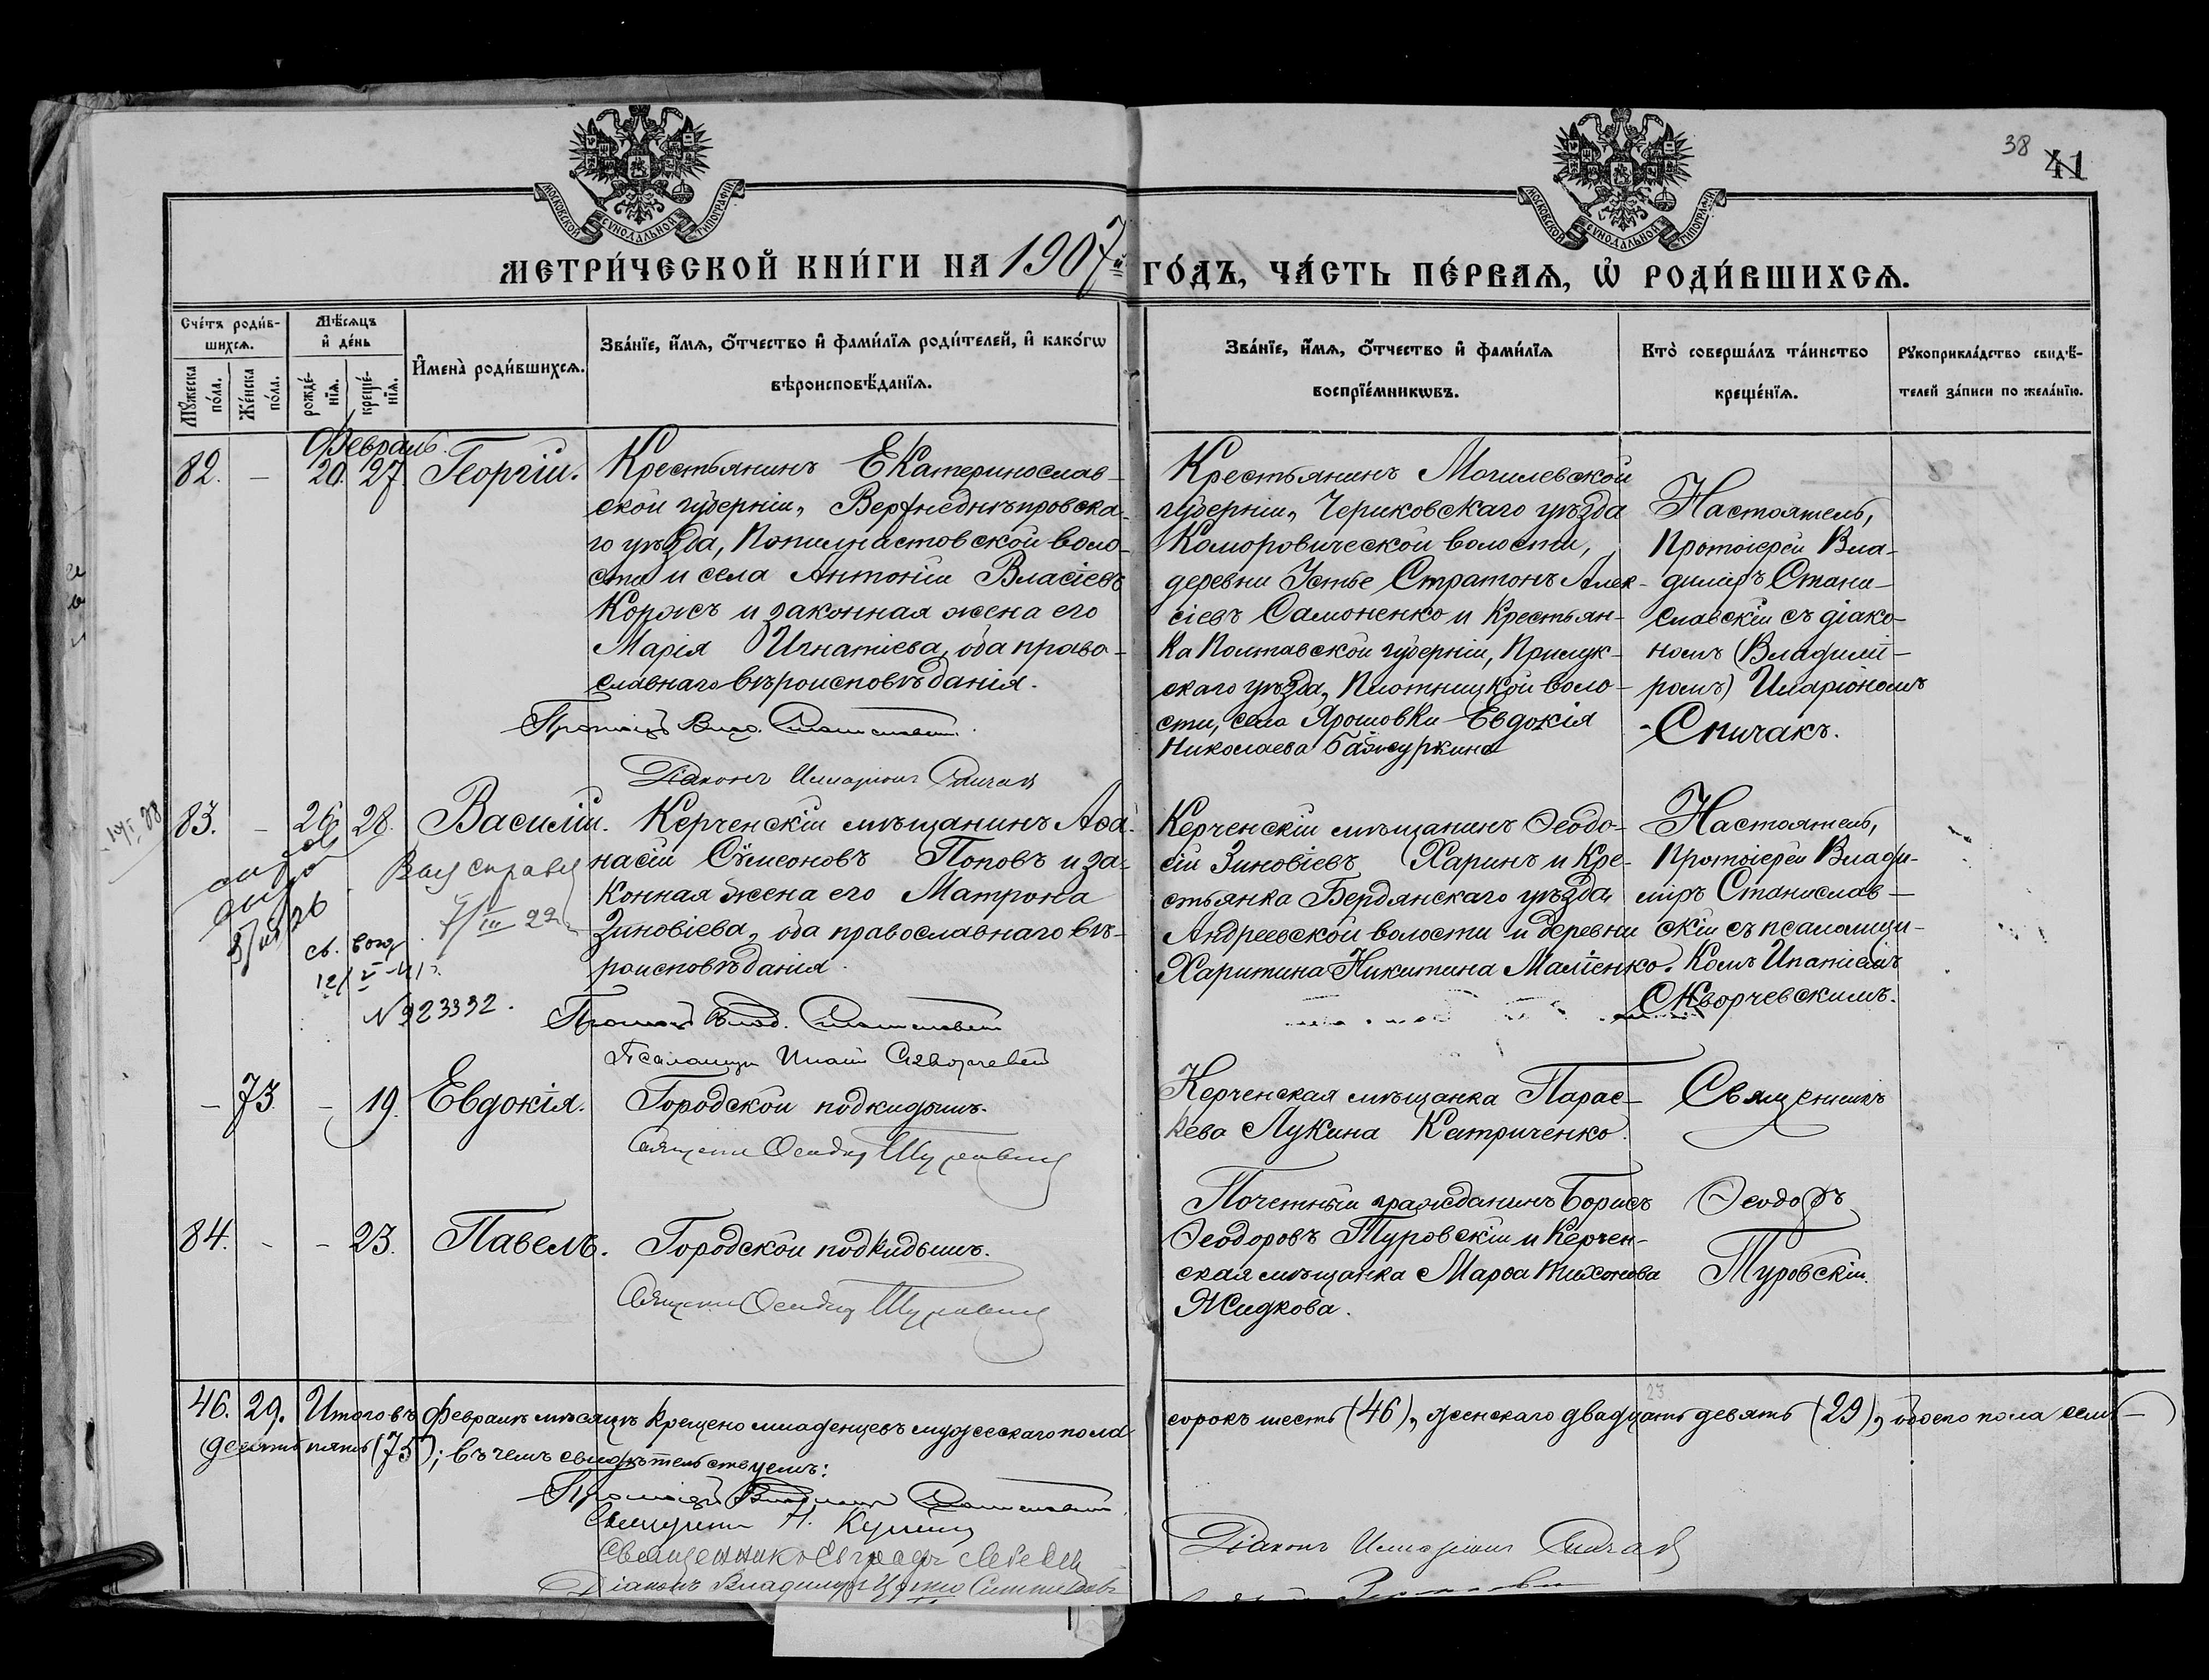 38
41
МОСКОВСКОЙ СѴНОДАЛЬНОЙ ТИПОГРАФІИ
МОСКОВСКОЙ СѴНОДАЛЬНОЙ ТИПОГРАФІИ
МЕТРИ́ЧЕСКОЙ КНИ́ГИ НА 1907й ГО́ДЪ, ЧА́СТЬ ПЕ́РВАѦ, Ѡ҆ РОДИ́ВШИХСѦ.
Сче́тъ роди́в-
шихсѧ.
Мꙋ́жеска по́ла.
Же́нска по́ла.
Мѣ́сѧцъ
и҆ де́нь
рожде́-
нїѧ.
креще́-
нїѧ.
И҆мена̀ роди́вшихсѧ.
Зва́нїе, и҆́мѧ, ѻ҆́тчество и҆ фами́лїѧ роди́телей, и҆ како́гѡ
вѣроисповѣ́данїѧ.
Зва́нїе, и҆́мѧ, ѻ҆́тчество и҆ фами́лїѧ
воспрїе́мникѡвъ.
Кто̀ соверша́лъ та́инство
креще́нїѧ.
Рꙋкоприкла́дство свидѣ́-
телей за́писи по жела́нїю.
Февраль.
82. – 20. 27. Георгій.
Крестьянинъ Екатеринослав-
ской губерніи, Верхнеднѣпровска-
го уѣзда, Попельнастовской воло-
сти и села Антоній Власіевъ
Коржъ и законная жена его
Марія Игнатіева, оба право-
славнаго вѣроисповѣданія.
Протоіер. Влад. Станиславскій
Діаконъ Иларіонъ Спичакъ
Крестьянинъ Могилевской
губерніи, Чериковскаго уѣзда
Коморовической волости,
деревни Устье Стратонъ Алек-
сіевъ Самоненко и крестьян-
ка Полтавской губерніи, Прилук-
скаго уѣзда, воло-
сти, села Ярошовки Евдокія
Николаева
Настоятель,
Протоіерей Вла-
диміръ Стани-
славскій съ діако-
номъ (Владимі-
ромъ) Иларіономъ
Спичакъ.
83. – 26. 28. Василій.
Керченскій мѣщанинъ Аѳа-
насій Сѵмеоновъ Поповъ и за-
конная жена его Матрона
Зиновіева, оба православнаго вѣ-
роисповѣданія.
Протоіер. Влад. Станиславскій
Псаломщ. Ипатій Скворчевскій
7/III 22
св. возр.
12/V-41 г.
№ 923332.
Керченскій мѣщанинъ Ѳеодо-
сій Зиновіевъ Харинъ и кре-
стьянка Бердянскаго уѣзда
Андреевской волости и деревни
Харитина Никитина Маліенко.
Настоятель,
Протоіерей Влади-
міръ Станислав-
скій съ псаломщи-
комъ Ипатіемъ
Скворчевскимъ.
– 73. – 19. Евдокія.
Городской подкидышъ.
Священ. Ѳеодоръ Туровскій
Керченская мѣщанка Парас-
кева Лукина Катриченко.
Священникъ
84. – – 23. Павелъ.
Городской подкидышъ.
Священ. Ѳеодоръ Туровскій
Почетный гражданинъ Борисъ
Ѳеодоровъ Туровскій и Керчен-
ская мѣщанка Марѳа Тихонова
Жидкова.
Ѳеодоръ
Туровскій.
46. 29. Итого въ Февралѣ мѣсяцѣ крещено младенцевъ мужескаго пола
сорокъ шесть (46), женскаго двадцать девять (29), обоего пола семь-
десятъ пять (75); въ чемъ свидѣтельствуемъ:
Протоіерей Владиміръ Станиславскій
Священникъ
Діаконъ Владиміръ
Діаконъ Иларіонъ Спичакъ